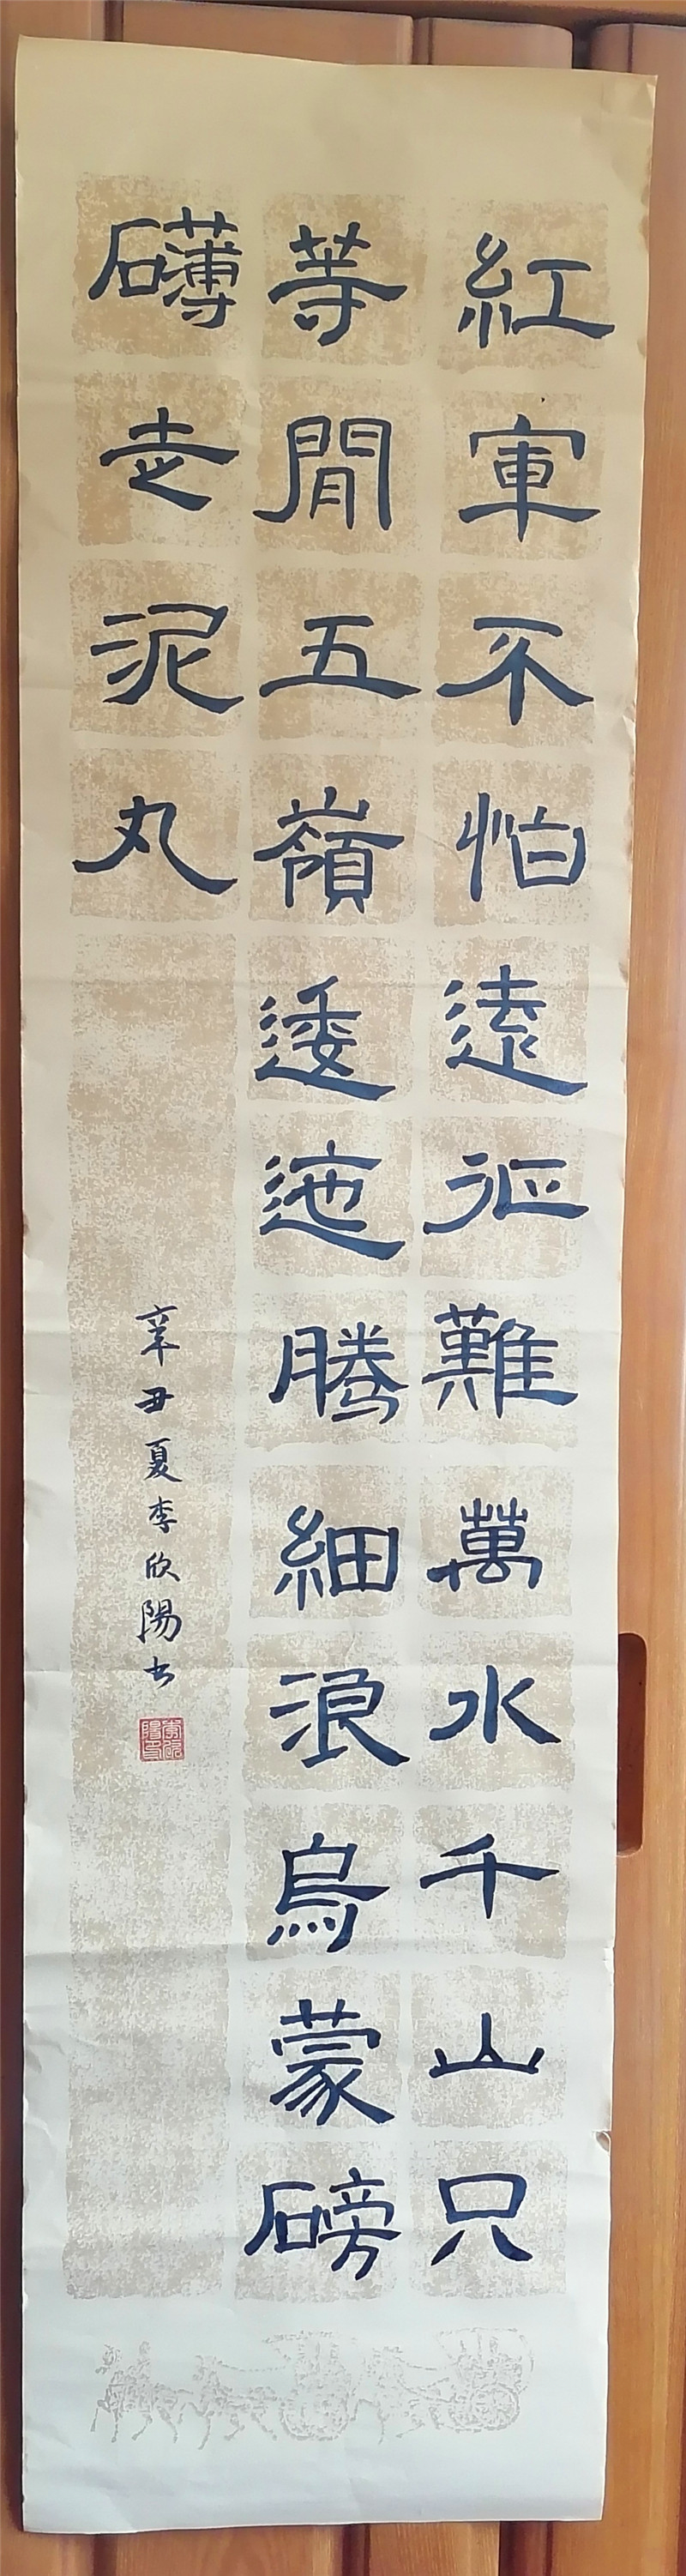 紅軍不怕遠征難萬水千山只
等閒五嶺逶迤騰細浪烏蒙磅
礴走泥丸
辛丑夏李欣陽書